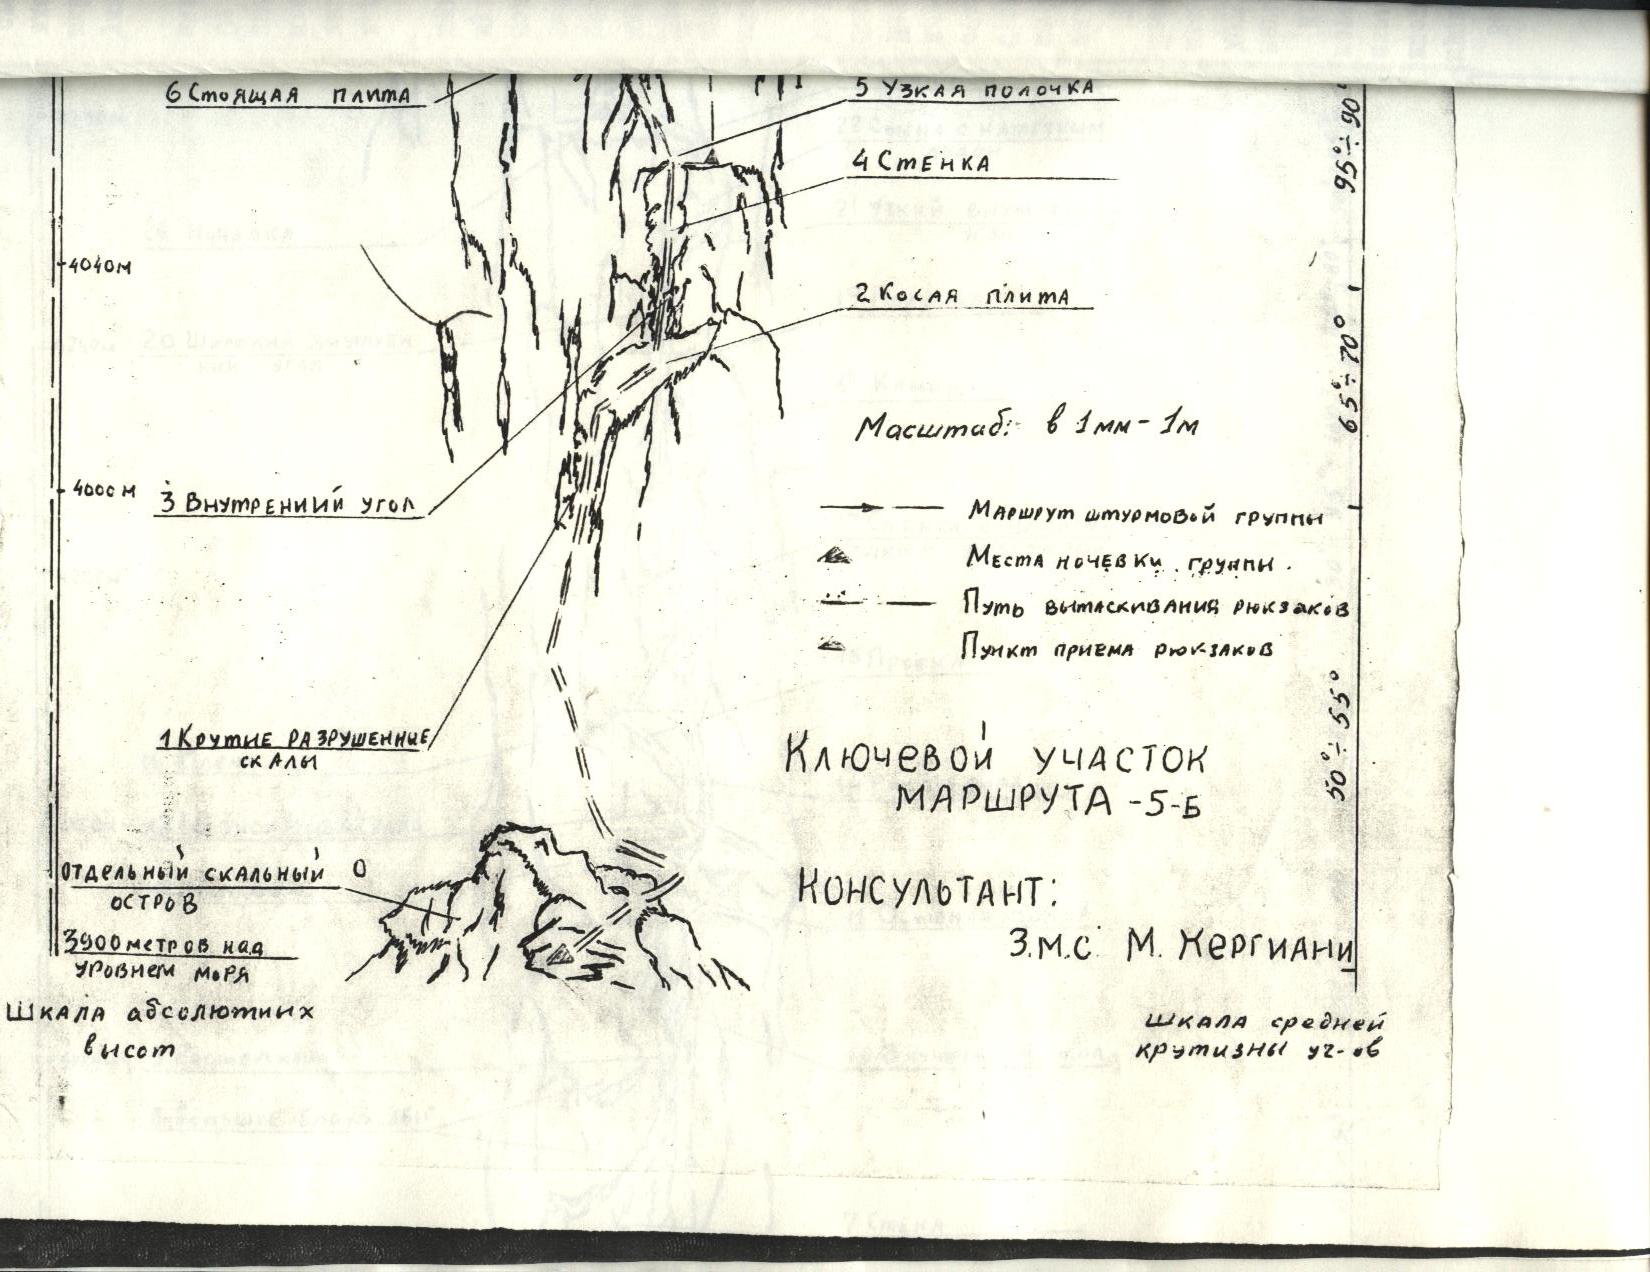 6 Стоящая плита
5 Узкая полочка
4 Стенка
95°÷90°
4040м
2 Косая плита
65°÷70°
Масштаб: в 1мм-1м
4000м
3 Внутренний угол
Маршрут штурмовой группы
Места ночевки группы.
Путь вытаскивания рюкзаков
Пункт приема рюкзаков
1 Крутые разрушенные
скалы
50°÷55°
Ключевой участок
маршрута -5-Б
Отдельный скальный 0
остров
Консультант:
З.м.с. М. Хергиани
3900метров над
уровнем моря
Шкала абсолютных
высот
Шкала средней
крутизны уч-ов